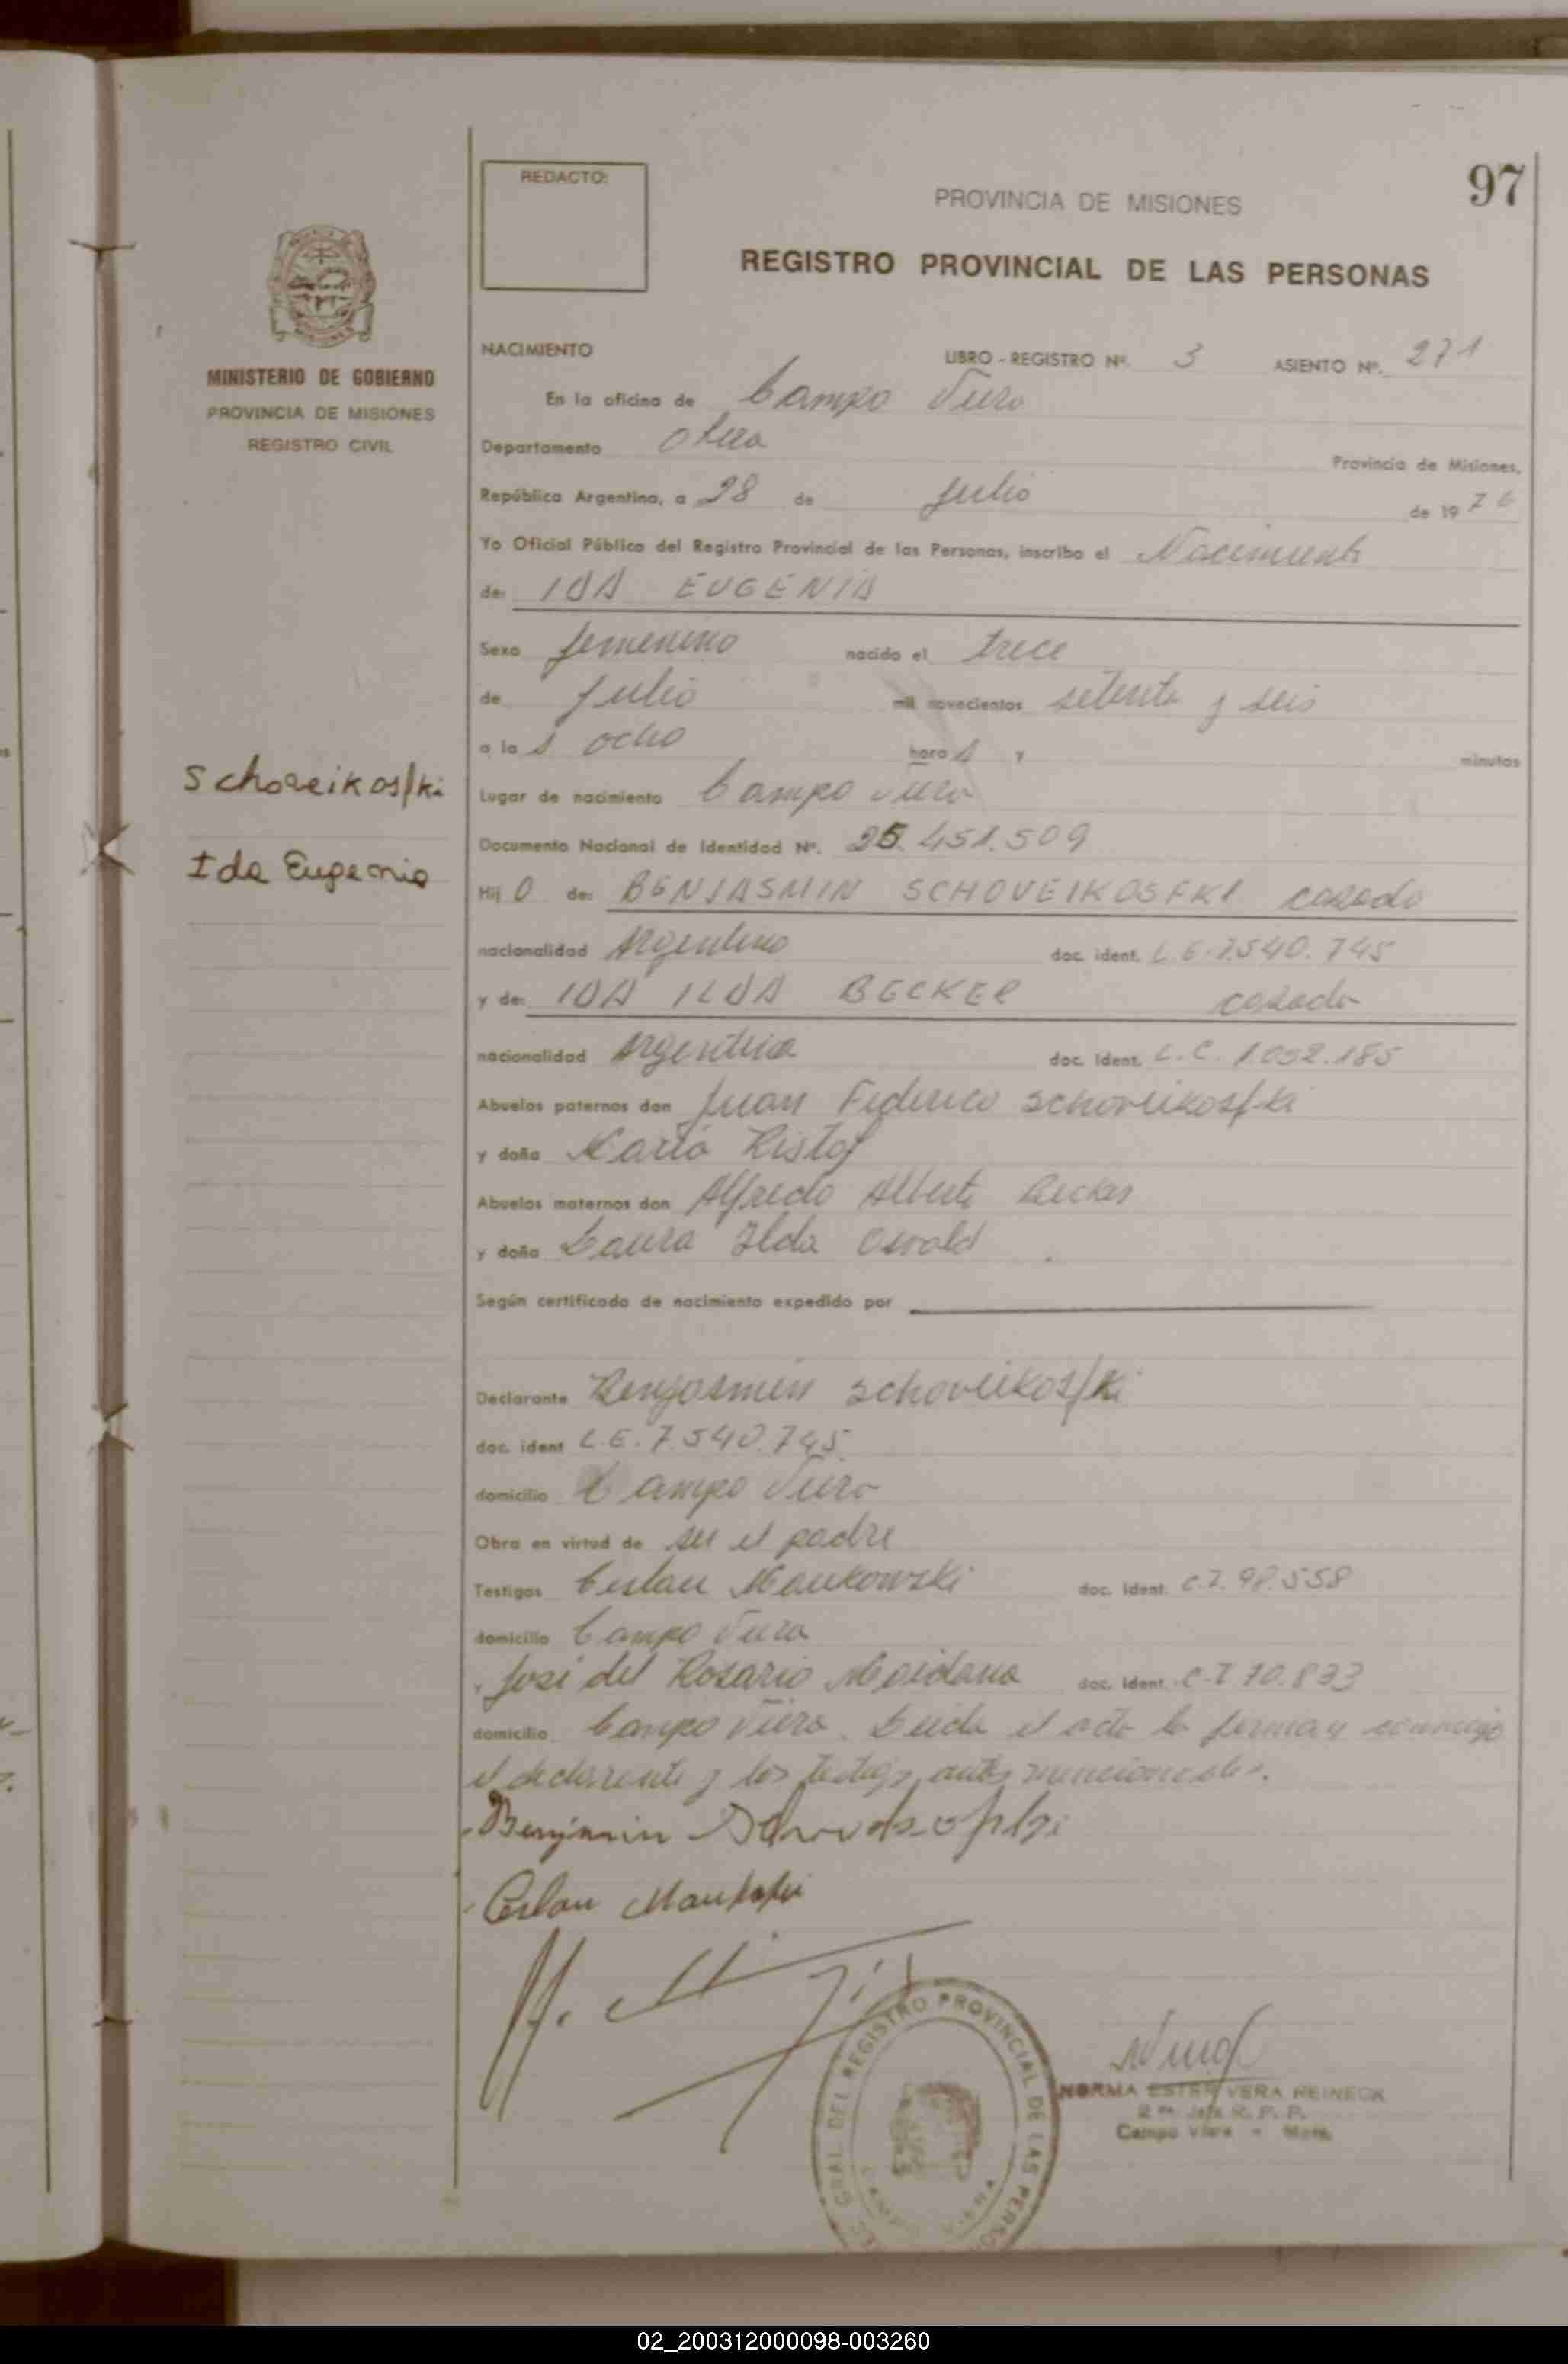 REDACTO:
97
PROVINCIA DE MISIONES
REGISTRO PROVINCIAL DE LAS PERSONAS
MINISTERIO DE GOBIERNO
PROVINCIA DE MISIONES
REGISTRO CIVIL
Schoveikosfki
Ida Eugenia
NACIMIENTO LIBRO - REGISTRO Nº. 3 ASIENTO Nº. 271
En la oficina de Campo Viera
Departamento Obera Provincia de Misiones,
República Argentina, a 28 de Julio de 1976
Yo Oficial Público del Registro Provincial de las Personas, inscribo el Nacimiento
de: IDA EUGENIA
Sexo femenino nacido el trece
de Julio mil novecientos setenta y seis
a las ocho horas y minutos
Lugar de nacimiento Campo Viera
Documento Nacional de Identidad Nº. 25.451.509
Hij O de: BENJASMIN SCHOVEIKOSFKI casado
nacionalidad Argentino doc. ident. L.E. 7.540.745
y de: IDA ILDA BECKER casada
nacionalidad Argentina doc. ident. L.C. 1.052.185
Abuelos paternos don Juan Federico Schoveikosfki
y doña Maria Ristof
Abuelos maternos don Alfredo Alberto Becker
y doña Laura Ilda Osvald
Según certificado de nacimiento expedido por
Declarante Benjasmin Schoveikosfki
doc. ident L.E. 7.540.745
domicilio Campo Viera
Obra en virtud de ser el padre
Testigos Ceslau Maukowski doc. ident. C.I. 98.558
domicilio Campo Viera
y José del Rosario Maidana doc. ident. C.I 70.833
domicilio Campo Viera. Leida el acta la firman conmigo
el declarante y los testigos antes mencionados.
Benjamin
Ceslau
REGISTRO PROVINCIAL DE LAS PERSO
GRAL. DEL
CAMPO VIERA
NORMA ESTER VERA REINECK
Jefe R. P. P.
Campo Viera - Mnes.
02_200312000098-003260